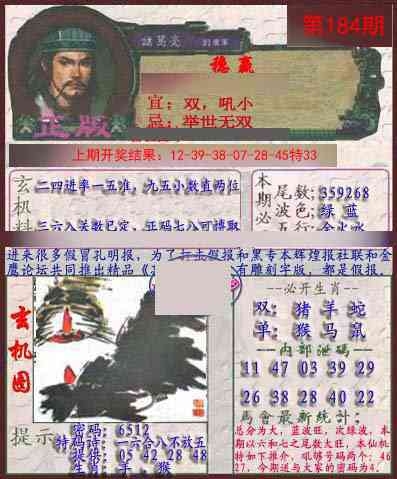 第184期
諸葛亮
穩贏
宜：双，吼小
忌：举世无双
正版
上期开奖结果：12-39-38-07-28-45特33
玄机料
二四进率一五准，九五小数直两位
三六八关数已定，正码七八可博取
本期必
尾数：359268
波色：绿 蓝
五行：金火水
进来很多假冒孔明报，为了打击假报和黑专本辉煌报社联和金
鹰论坛共同推出精品
有雕刻字版，都是假报，
玄机图
--必开生肖--
双：猪 羊 蛇
单：猴 马 鼠
--内部泄码--
11 47 03 39 29
26 38 28 40 22
馬會最新统计：
总分为大，蓝波旺，次绿波，本
期以六和七之尾数大旺，本仙机
特如下推介，吼够号码两个：46
27，今期送与大家的密码为4.
提示
密码：6512
特码诗：一六合八不放五
提供：05 42 28 48
生肖：羊，猴